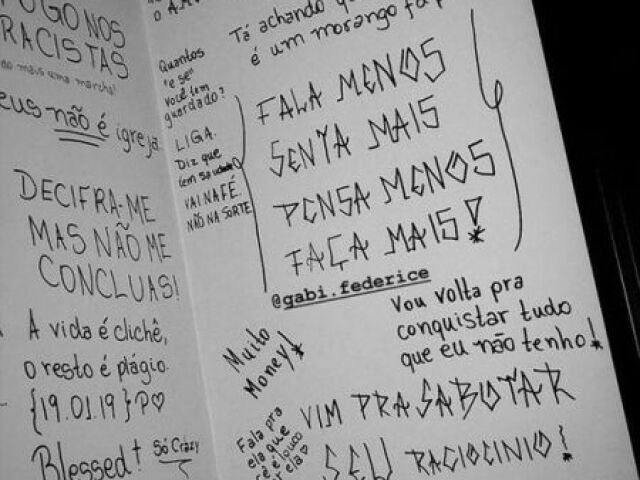 FOGO NOS
RACISTAS
mais uma marcha!
não é igreja.
DECIFRA-ME
MAS NÃO ME
CONCLUAS!
A vida é clichê,
o resto é plágio.
{19.01.19} PO♡
Blessed†
Só Crazy
Quantos
"e se"
você tem
guardado?
LIGA.
Diz que
tem saudade
VAI NA FÉ.
NÃO NA SORTE.
Tá achando que
é um morango
FALA MENOS
SENTA MAIS
PENSA MENOS
FAÇA MAIS!
@gabi.federice
Muito
Money!
Vou volta pra
conquistar tudo
que eu não tenho!
Fala pra
ela que
cê é louco
ela♡
VIM PRA SABOTAR
SEU RACIOCINIO!